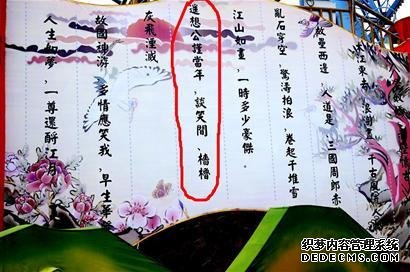 大江東去，浪淘盡，千古風流人
故壘西邊，人道是，三國周郎赤
亂石穿空，驚濤拍浪，卷起千堆雪
江山如畫，一時多少豪傑。
遙想公謹當年，談笑間、檣櫓
灰飛湮滅
故國神游，多情應笑我，早生華
人生如夢，一尊還酹江月
织梦内容管理系统
DEDECMS.COM